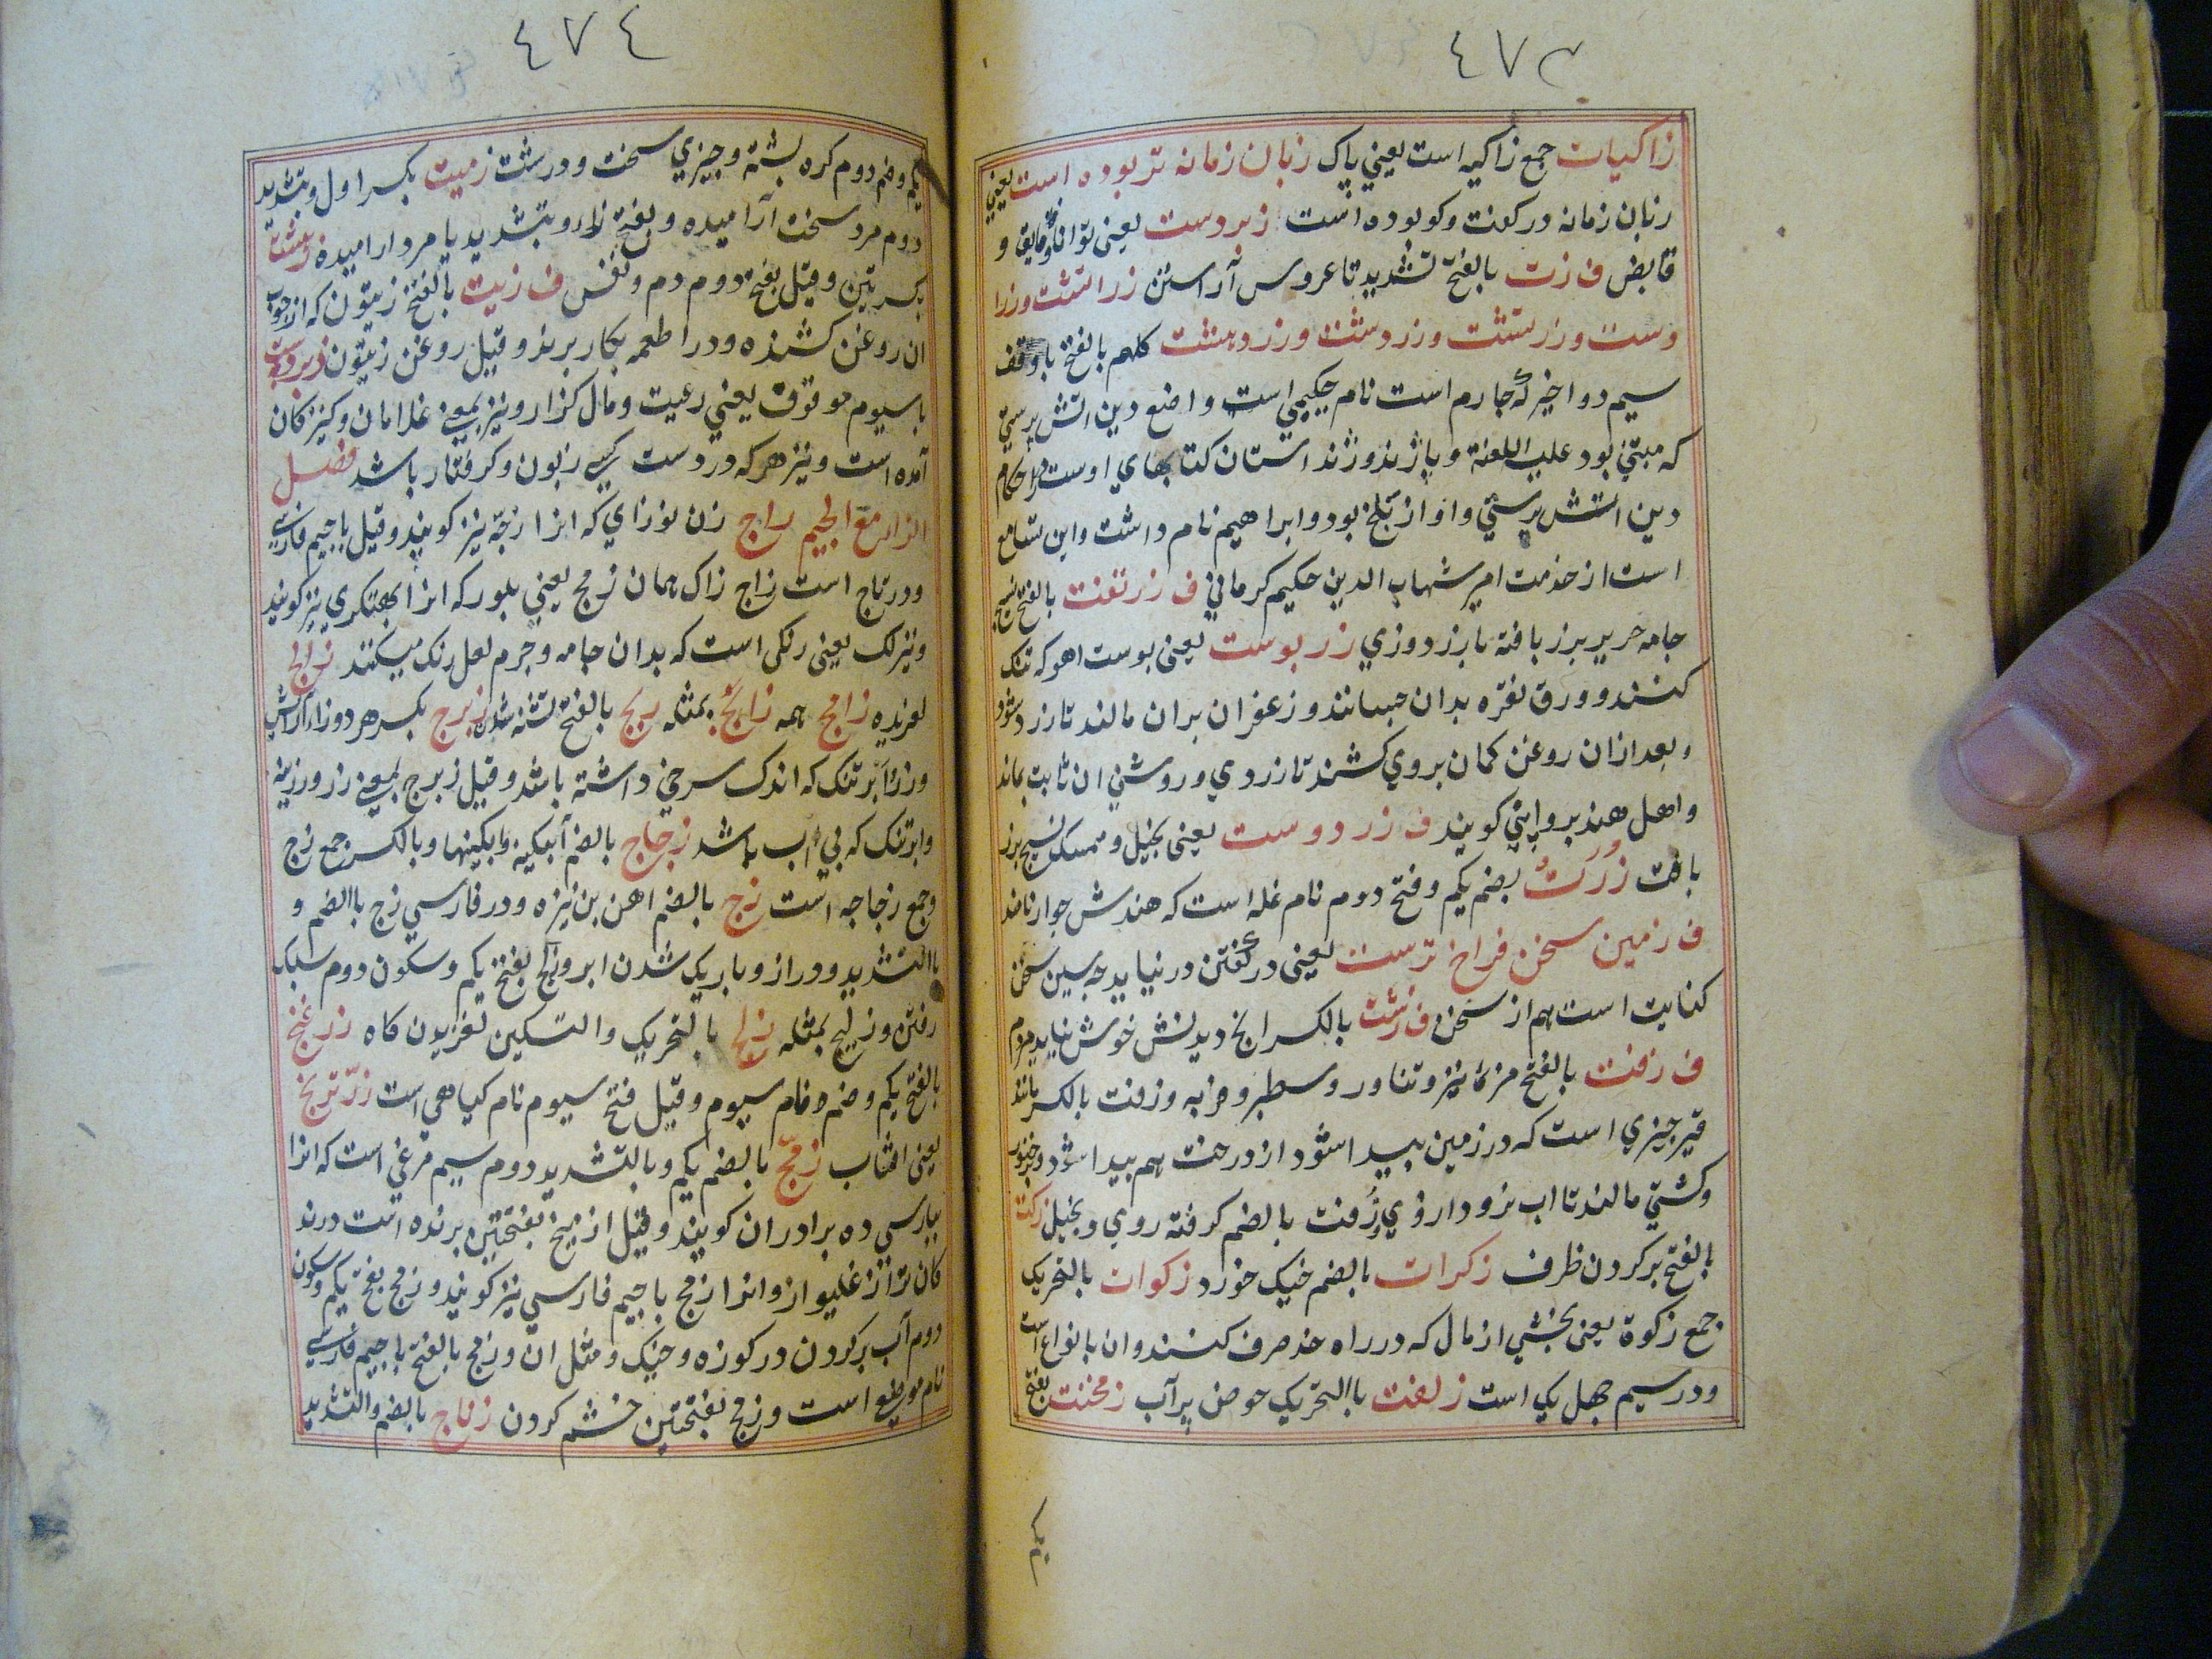 ٤٧٣
زاکیات جمع زاکیه است یعني پاک زبان زمانه تر بوده است یعني
زبان زمانه در کفت وکو بوده است زبردست یعنی توانا و فایق و
قابض ف زت بالفتح تشدید تا عروس آراستن زراتشت وزرا
دست وزرتشت وزردشت وزردهشت کلهم بالفتح با وقف
سیم دو اخیر که چارم است نام حکیمي است واضع دین اتش پرستي
که مبتني بود علیه اللعنة و پاژند و ژند استان کتابهاي اوست در احکام
دین اتش پرستي واو از بلخ بود وابراهیم نام داشت واین سماع
است از خدمت امیر شهاب الدین حکیم کرماني ف زربفت بالفتح نسیج
جامه حریر بزر بافته یا بزر دوزي زر پوست یعنی پوست اهو که تنک
کنند و ورق نقره بدان چسپانند و زعفران بران مالند تا زرد شود
وبعد ازان روغن کمان بروي کشند تا زردي و روشني ان ثابت بماند
واهل هند پرواپني کویند ف زر دوست یعنی بخیل و ممسک نسیج بزر
بافت زرت بضم یکم وفتح دوم نام غله است که هندش جوار نامند
ف زمین سخن فراخ ترست یعنی در کفتن درنیاید چه زمین سخن
کنایت است هم از سخن ف زشت بالکسر انچ دیدنش خوش نیاید مردم
ف زفت بالفتح مزهٔ تیز و تناور و سطبر و فربه وزفت بالکسر مانند
قیر چیزي است که در زمین پیدا شود از درخت هم پیدا شود و بر خنور
وکشتي مالند تا اب نرود دارویي و زُفت بالضم کرفته روي و بخیل زکت
بالفتح پر کردن ظرف زکرات بالضم خیک خورد زکوات بالتحریک
جمع زکوة یعنی بخشي از مال که در راه خدا صرف کنند وان بانواع است
ودر سیم چهل یک است زلفت باالتحریک حوض پر آب زمخت بفتح
یکم
٤٧٤
یکم وضم دوم کره بسته و چیزي سخت و درشت زمیت بکسر اول وبتشدید
دوم مرد سخت آرامیده وبفتح زا و بتشدید یا مرد ارامیده زهشت
بکسرتین وقیل بفتح دوم دم ونفس ف زیت بالفتح زیتون که از چوب
ان روغن کشنده ودر اطعمه بکار برند وقیل روغن زیتون زیردست
با سیوم موقوف یعني رعیت ومال کزار ونیز بمعني غلامان وکنیزکان
آمده است ونیز هرکه در دست کسي زبون وکرفتار باشد فصل
الزا مع الجیم زاج زن نوزاي که انرا زجّه نیز کویند وقیل با جیم فارسي
ودر تاج است زاج زاک همان زمج یعني بلور که انرا بهتکري نیز کویند
ونیز لک یعنی رنکي است که بدان جامه وچرم لعل رنک میکنند زالج
لغزنده زامج همه زائج بمثله زبج بالفتح تشنه شدن زبرج بکسر هر دو زا آرایش
وزر وابر تنک که اندک سرخي داشته باشد وقیل زبرج بمعني زر وزینه
وابر تنک که بي آب باشد زجاج بالضم آبکینه وابکینها وبالکسر جمع زج
وجمع زجاجه است زج بالضم اهن بن نیزه ودر فارسي زج باالضم و
باالتشدید ودراز وباریک شدن ابرو زلج بفتح یکم وسکون دوم سبک
رفتن وزلیج بمثله زلج بالتحریک والتسکین لغزیدن کاه زرغنج
بالفتح یکم وضم دوام سیوم وقیل فتح سیوم نام کیاهي است زرّ ترنج
یعنی افتاب زمّج بالضم یکم وبالتشدید دوم سیم مرغي است که انرا
بپارسي ده برادران کویند وقیل از میخ بفتحتین پرنده است درند
کان تر از غلیواز وانرا زمج با جیم فارسي نیز کویند و زمج بفتح یکم وسکون
دوم آب پر کردن در کوزه وخیک ومثل ان وزمج بالفتح با جیم فارسي
نام موضع است وزمج بفتحتین خشم کردن زماج بالضم والتشدید